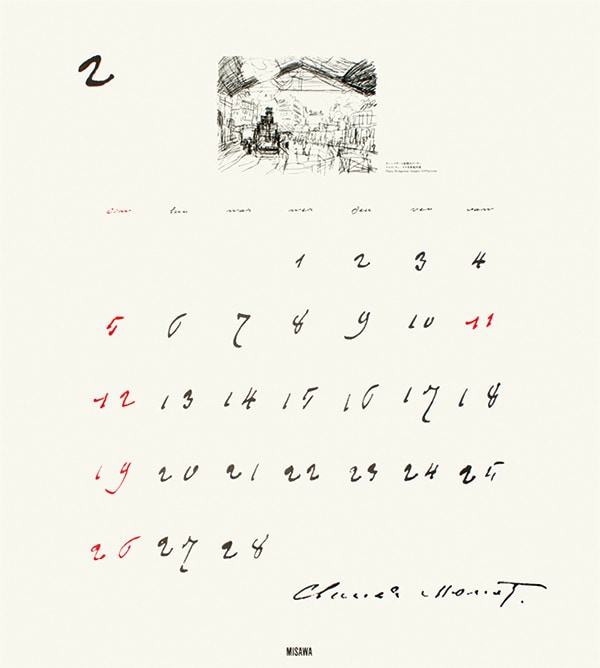 2
dim lun mar mer jeu ven sam
1 2 3 4
5 6 7 8 9 10 11
12 13 14 15 16 17 18
19 20 21 22 23 24 25
26 27 28
Claude Monet.
MISAWA